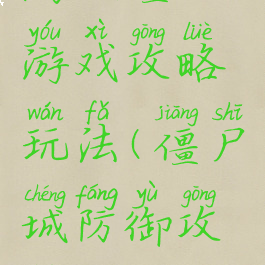 yóu xì gōng lüè
游戏攻略
wán fǎ jiāng shī
玩法(僵尸
chéng fáng yù gōng
城防御攻